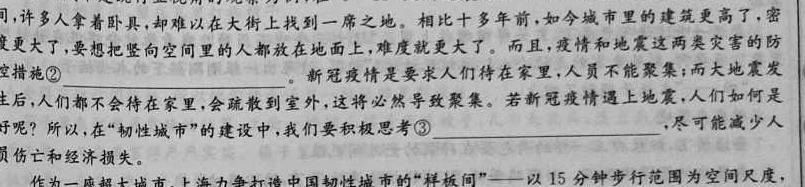 间,许多人拿着卧具,却难以在大街上找到一席之地。相比十多年前,如今城市里的建筑更高了,密
度更大了,要想把竖向空间里的人都放在地面上,难度就更大了。而且,疫情和地震这两类灾害的防
控措施②____________________。新冠疫情是要求人们待在家里,人员不能聚集;而大地震发
生后,人们都不会待在家里,会疏散到室外,这将必然导致聚集。若新冠疫情遇上地震,人们如何是
好呢?所以,在“韧性城市”的建设中,我们要积极思考③____________________,尽可能减少人
员伤亡和经济损失。
作为一座超大城市,上海力争打造中国韧性城市的“样板间”——以15分钟步行范围为空间尺度,